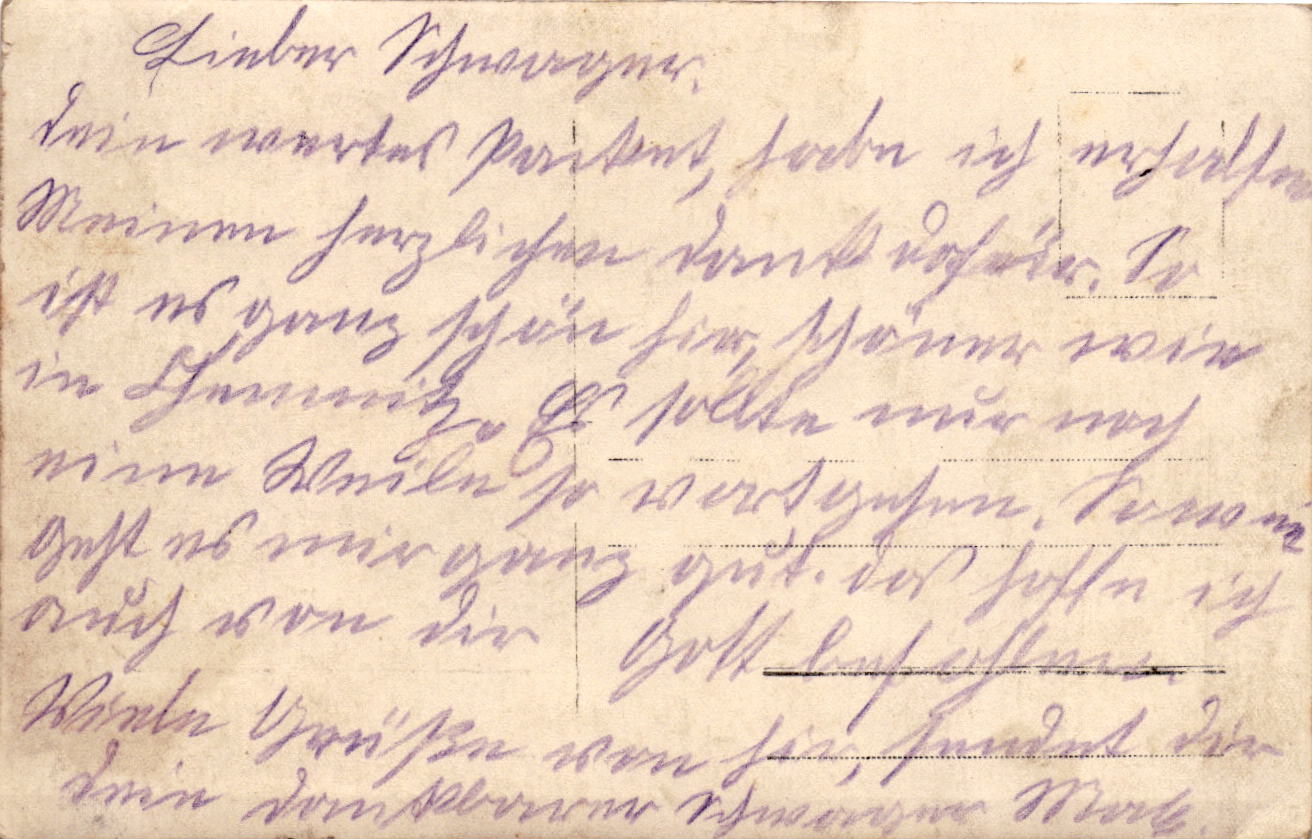 Lieber Schwager.
Dein wertes Packet, habe ich erhalten
Meinen herzlichen Dank dafür. So
ist es ganz schön hier, schöner wie
in Chemnitz. Es sollte nur noch
eine Weile so vortgehen. Soweit
geht es mir ganz gut. das hoffe ich
auch von dir Gott befohlen
Viele Grüße von hier, sendet dir
Dein dankbarer Schwager